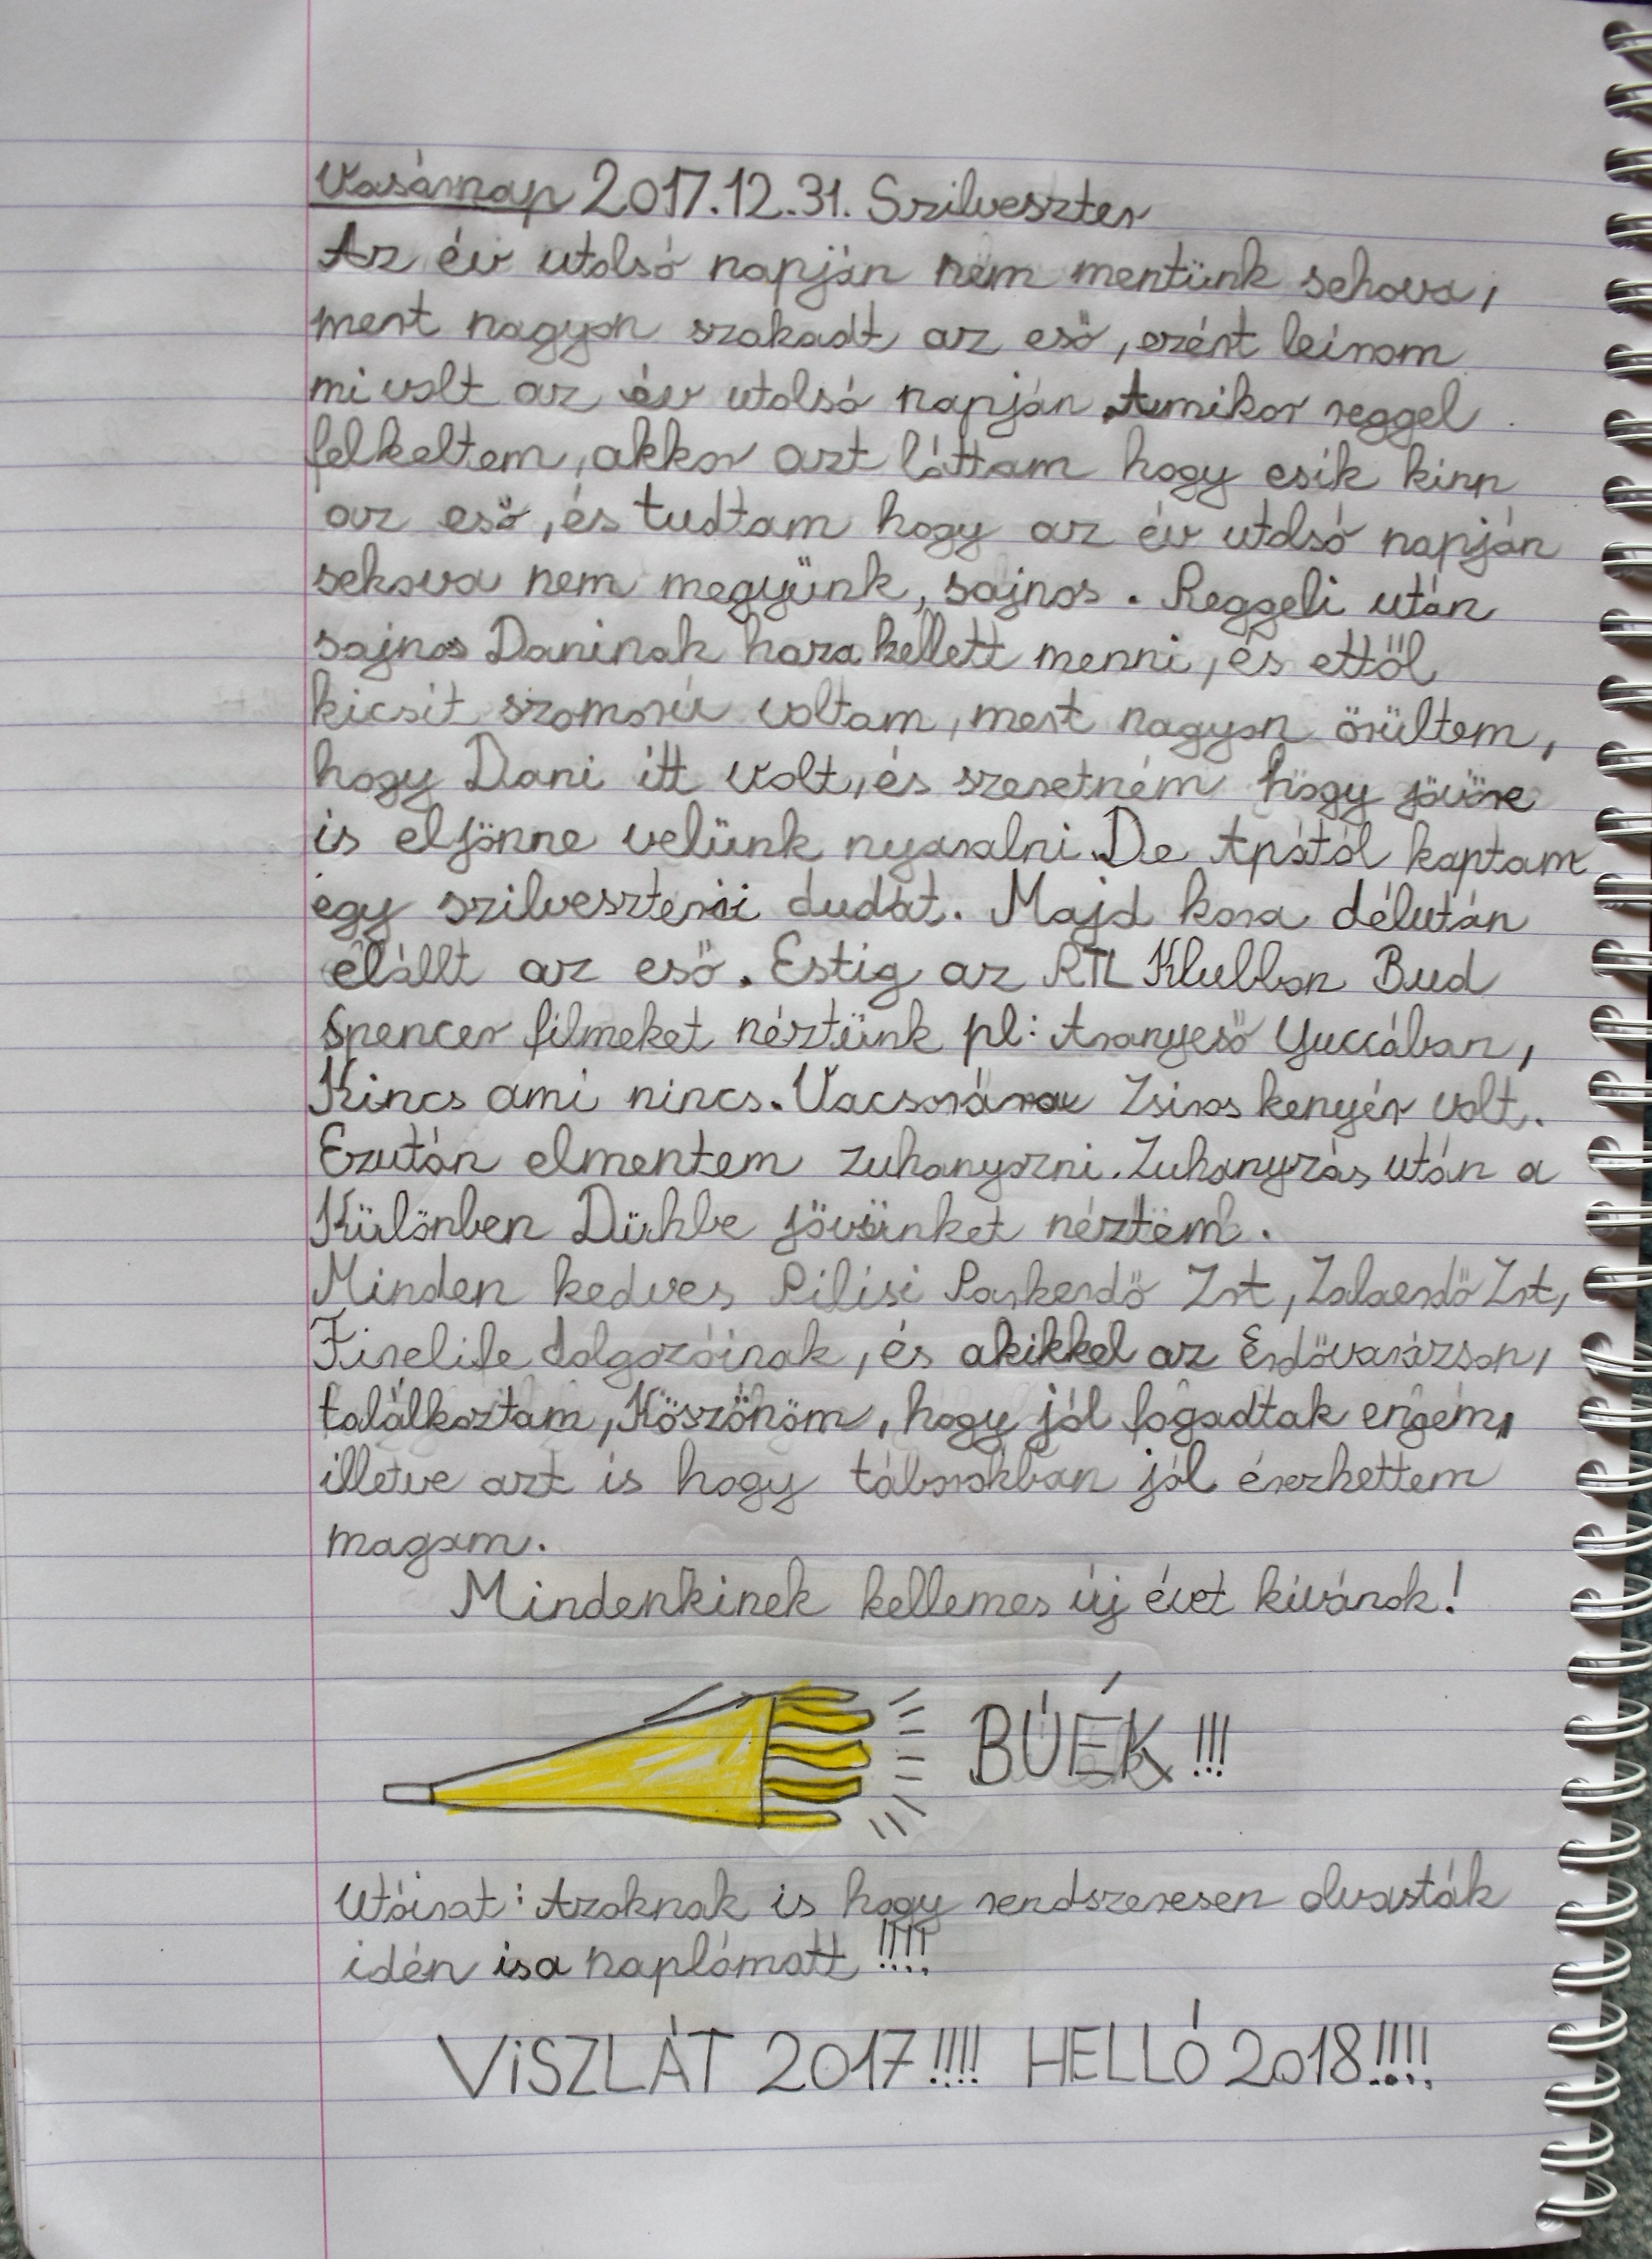 Vasárnap 2017.12.31. Szilveszter
Az év utolsó napján nem mentünk sehova,
mert nagyon szakadt az eső, ezért leírom
mi volt az év utolsó napján. Amikor reggel
felkeltem, akkor azt láttam hogy esik kinn
az eső, és tudtam hogy az év utolsó napján
sehova nem megyünk, sajnos. Reggeli után
sajnos Daninak haza kellett menni, és ettől
kicsit szomorú voltam, mert nagyon örültem,
hogy Dani itt volt, és szeretném hogy jövőre
is eljönne velünk nyaralni. De Apától kaptam
egy szilveszteri dudát. Majd kora délután
elállt az eső. Estig az RTL Klubban Bud
Spencer filmeket néztünk pl: Aranyeső Yuccában,
Kincs ami nincs. Vacsorára Zsiros kenyér volt.
Ezután elmentem zuhanyozni. Zuhanyzás után a
Különben Dühbe jövünket néztem.
Minden kedves Pilisi Parkerdő Zrt, Zalaerdő Zrt,
Firelife dolgozóinak, és akikkel az Erdővarázson,
találkoztam, Köszönöm, hogy jól fogadtak engem,
illetve azt is hogy táborokban jól érezhettem
magam.
Mindenkinek kellemes új évet kívánok!
BÚÉK!!!
Utóirat: Azoknak is hogy rendszeresen olvasták
idén is a naplómatt!!!!
ViSZLÁT 2017!!!! HELLÓ 2018!!!!